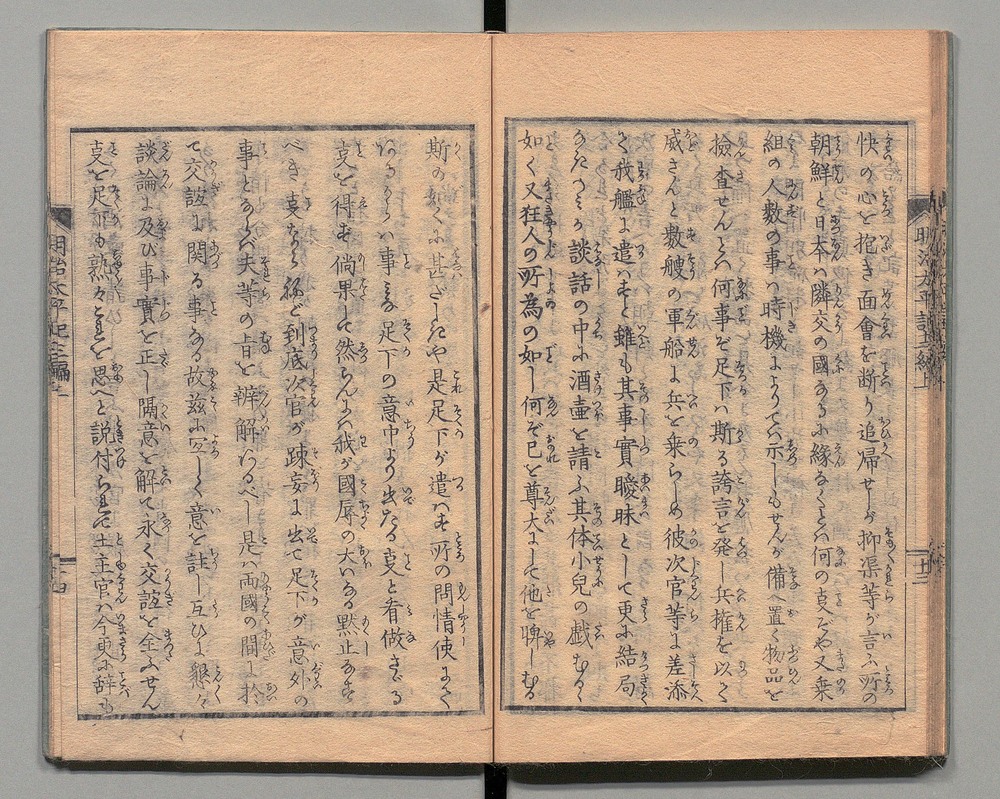 快の心を抱き面會を断り追帰せしが抑渠等が言ふ所の
朝鮮と日本ハ隣交の國なるに縁なくとハ何の㕝ぞや又乗
組の人數の事ハ時機によりてハ示しもせんが備へ置く物品を
撿査せんとハ何事ぞ足下ハ斯る誇言を発し兵権を以て
威さんと數艘の軍船に兵を乗らしめ彼次官等に差添
て我艦に遣ハすと雖も其事實曖昧として更に結局
談話の中に酒壷を請ふ其体小兒の戯むるゝ
如く又狂人の所為の如し何ぞ己を尊大にして他を睥しむる
斯の如くに甚だしきや是足下が遣ハす所の問情使にて
事みな足下の意中より出たる㕝と看做さゞる
㕝を得ず倘果して然らんにハ我が國辱の大ハなる黙止なす
べき㕝ならねど到底次官が踈妄に出て足下が意外の
事となれバ夫等の旨を辨解なるべし是ハ両國の間に於
て交誼に関る事なる故茲に宜しく意を註し互ひに懇々
談論に及び事實を正し隔意を解て永く交誼を全ふせん
㕝を足下も熟々これを思へと説付られて土主官ハ今更に辞も
明治太平記五編上
十三
明治太平記五編上
十四